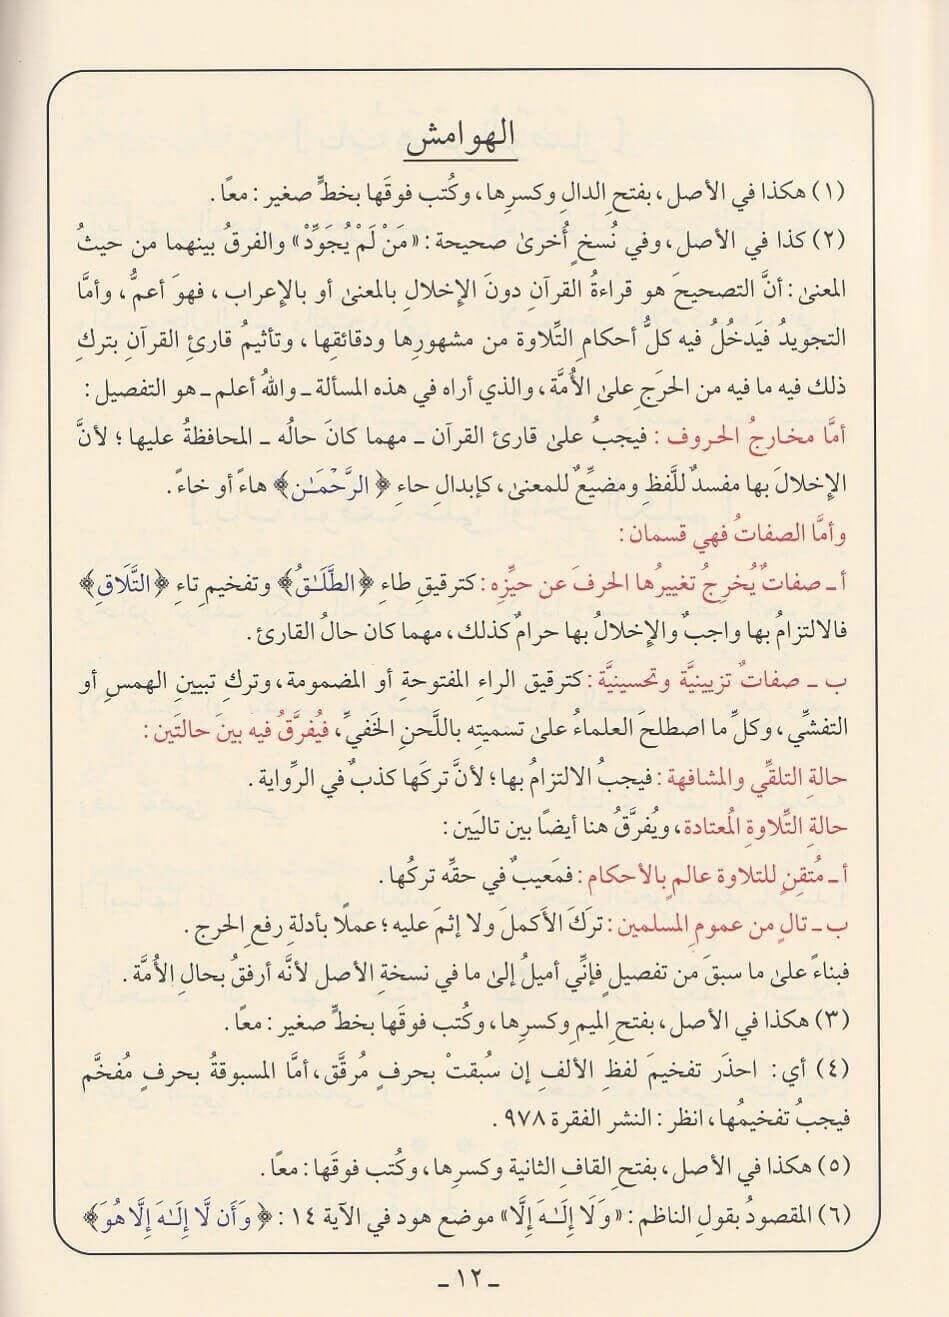 الهوامش
(١) هكذا في الأصل، بفتح الدالِ وكسرِها، وكُتب فوقَها بخطٍّ صغير: معًا.
(٢) كذا في الأصل، وفي نُسخٍ أُخرىٰ صحيحة: «مَنْ لَمْ يُجَوِّدْ» والفرقُ بينهما من حيثُ
المعنىٰ: أنَّ التصحيحَ هو قراءةُ القرآنِ دونَ الإخلالِ بالمعنىٰ أو بالإعراب، فهوَ أعمُّ، وأمَّا
التجويدُ فيَدخُلُ فيه كلُّ أحكامِ التِّلاوة من مشهورِها ودقائقِها، وتأثيمُ قارئِ القرآنِ بتركِ
ذلك فيه ما فيه من الحرَجِ علىٰ الأُمَّة، والذي أراه في هذه المسألة ـ واللهُ أعلم ـ هو التفصيل:
أمَّا مخارجُ الحروف: فيجبُ علىٰ قارئ القرآن ـ مهما كانَ حالُه ـ المحافظةُ عليها؛ لأنَّ
الإخلالَ بها مفسدٌ للَّفظِ ومضيِّعٌ للمعنىٰ، كإبدالِ حاءِ ﴿الرَّحْمَـٰن﴾ هاءً أو خاءً.
وأمَّا الصفاتُ فهي قسمان:
أ ـ صفاتٌ يُخرِجُ تغييرُها الحرفَ عن حيِّزِه: كترقيقِ طاءِ ﴿الطَّلَـٰقُ﴾ وتفخيمِ تاءِ ﴿التَّلَاقِ﴾
فالالتزامُ بها واجبٌ والإخلالُ بها حرامٌ كذلك، مهما كان حالُ القارئ.
ب ـ صفاتٌ تزيينيَّة وتحسينيَّة: كترقيق الراءِ المفتوحةِ أو المضمومة، وتركِ تبيينِ الهمسِ أو
التفشِّي، وكلِّ ما اصطلحَ العلماءُ علىٰ تسميتِه باللَّحنِ الخَفيِّ، فيُفرَّقُ فيه بينَ حالتَين:
حالةِ التلقِّي والمشافهة: فيجبُ الالتزامُ بها؛ لأنَّ تركَها كذبٌ في الرِّواية.
حالةِ التِّلاوةِ المُعتادة، ويُفرَّقُ هنا أيضًا بين تاليَين:
أ ـ مُتقِنٍ للتلاوة عالمٍ بالأحكام: فمَعيبٌ في حقِّه تركُها.
ب ـ تالٍ من عمومِ المسلمين: تركَ الأكملَ ولا إثمَ عليه؛ عملًا بأدلةِ رفعِ الحرج.
فبناءً علىٰ ما سبقَ من تفصيلٍ فإنِّي أميلُ إلىٰ ما في نسخةِ الأصل لأنَّه أرفقُ بحالِ الأُمَّة.
(٣) هكذا في الأصل، بفتح الميمِ وكسرِها، وكُتب فوقَها بخطٍّ صغير: معًا.
(٤) أي: احذَر تفخيمَ لفظِ الألفِ إن سُبقتْ بحرفٍ مُرقَّق، أمَّا المسبوقةُ بحرفٍ مُفخَّم
فيجبُ تفخيمُها، انظر: النشر الفقرة ٩٧٨.
(٥) هكذا في الأصل، بفتح القافِ الثانية وكسرِها، وكُتب فوقَها: معًا.
(٦) المقصودُ بقول الناظم: «وَلَا إِلَـٰهَ إِلَّا» موضع هود في الآية ١٤: ﴿وَأَن لَّا إِلَـٰهَ إِلَّا هُوَ﴾
ـ ١٢ ـ